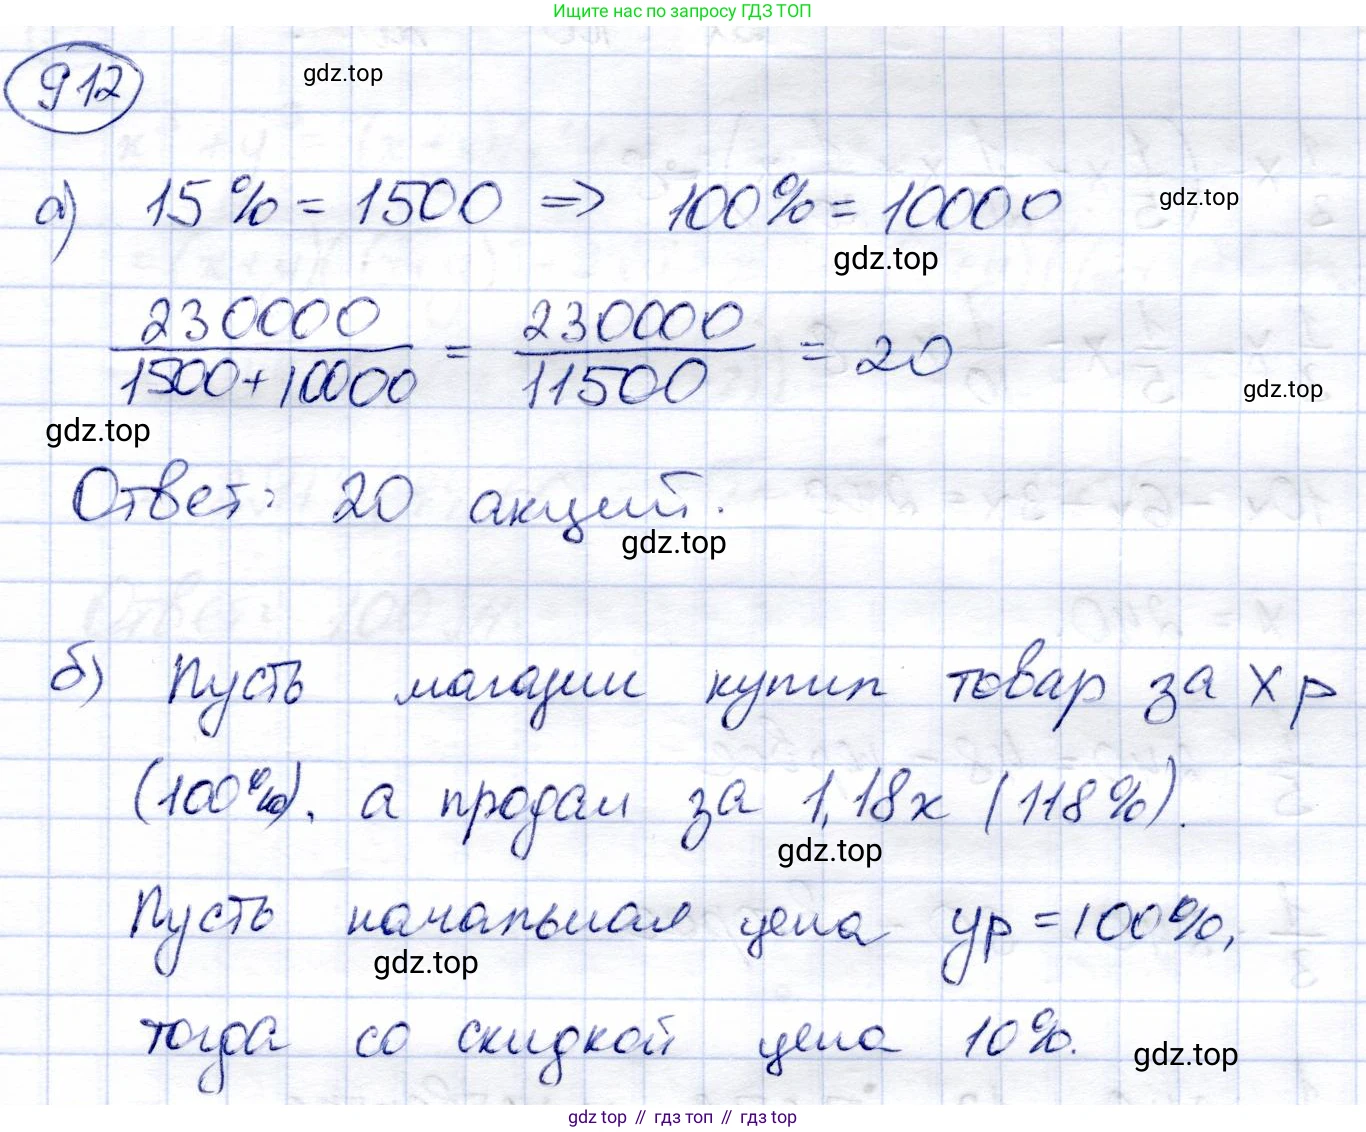 Ищите нас по запросу ГДЗ ТОП
912
gdz.top
а) 15% = 1500 => 100% = 10000
gdz.top
gdz.top
230000 / 1500+10000 = 230000 / 11500 = 20
gdz.top
gdz.top
Ответ: 20 акций.
gdz.top
б) Пусть магазин купил товар за х р
(100%), а продал за 1,18х (118%).
gdz.top
Пусть начальная цена ур = 100%,
gdz.top
тогда со скидкой цена 10%.
gdz.top
gdz.top // гдз топ // gdz top